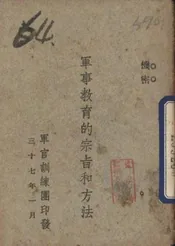 64.
機密
軍事教育的宗旨和方法
軍官訓練團印發
三十七年一月